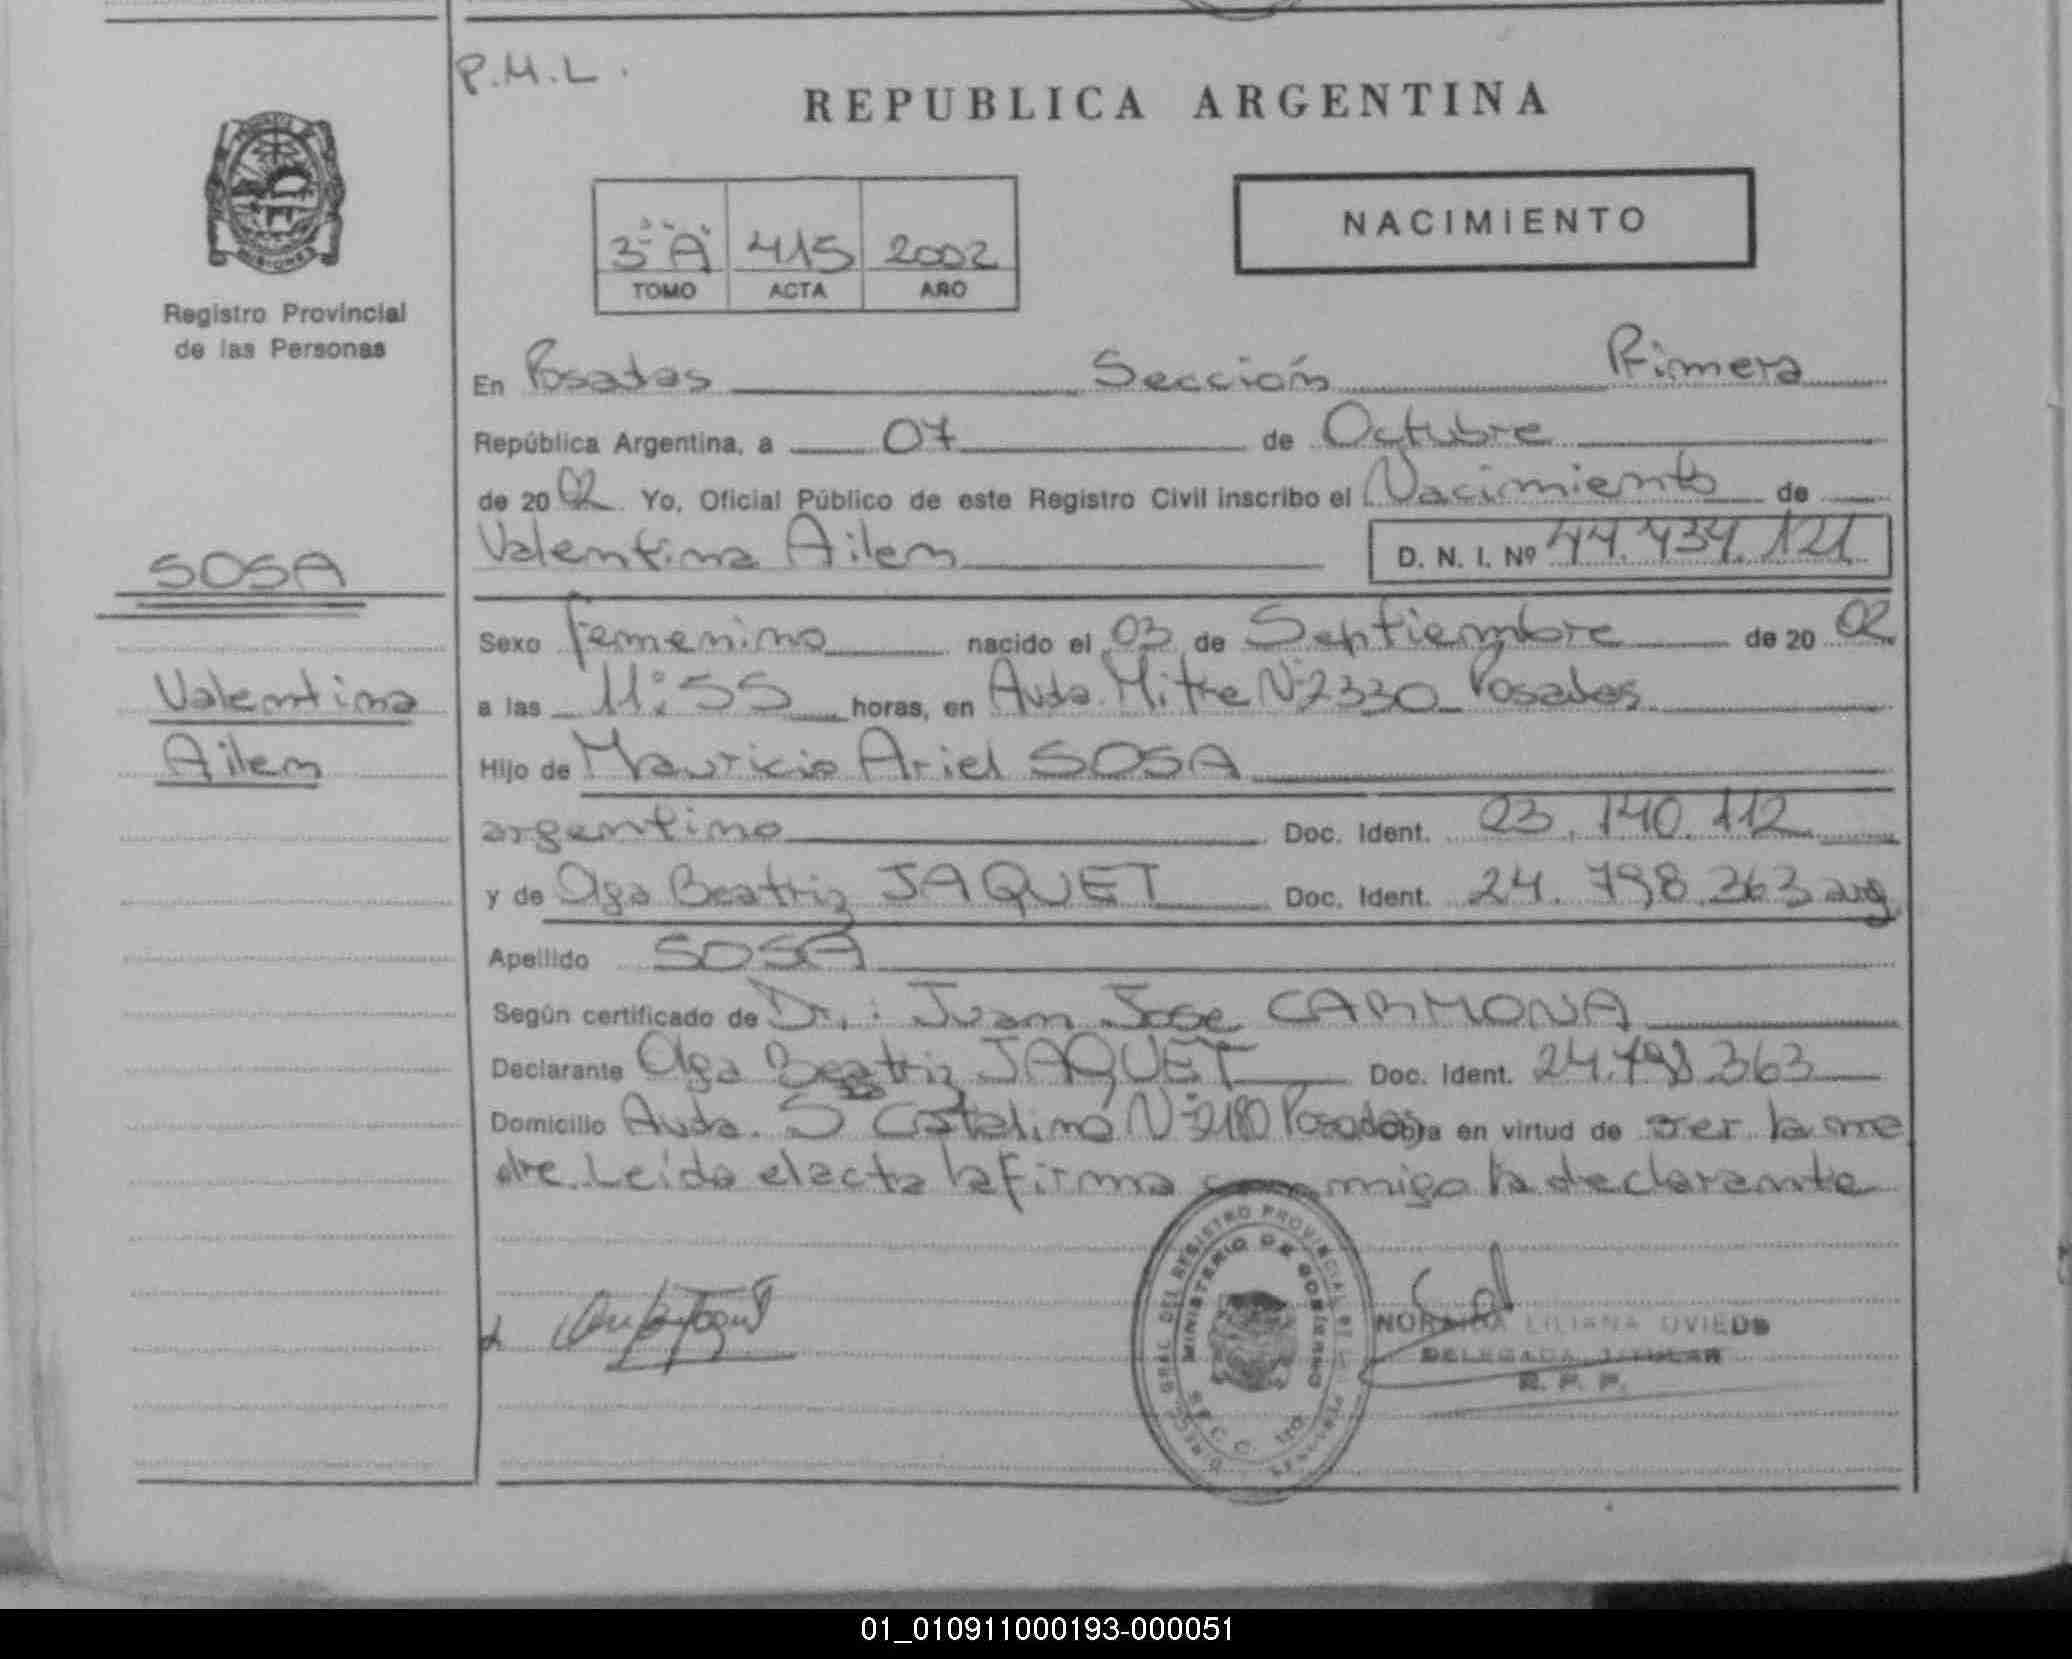 P.M.L.
REPUBLICA ARGENTINA
3º "A" 415 2002
TOMO ACTA AÑO
NACIMIENTO
MISIONES
Registro Provincial
de las Personas
En Posadas Sección Primera
República Argentina, a 07 de Octubre
de 2002 Yo, Oficial Público de este Registro Civil inscribo el Nacimiento de
Valentina Ailen D. N. I. Nº 44.434.121
SOSA
Valentina
Ailen
Sexo femenino nacido el 03 de Septiembre de 2002
a las 11:55 horas, en Avda. Mitre Nº 2330 Posadas
Hijo de Mauricio Ariel SOSA
argentino Doc. Ident. 23.140.112
y de Olga Beatriz JAQUET Doc. Ident. 24.798.363 arg
Apellido SOSA
Según certificado de Dr.: Juan Jose CARMONA
Declarante Olga Beatriz JAQUET Doc. Ident. 24.798.363
Domicilio Avda. Sta Catalina Nº 2180 Posadas obra en virtud de ser la ma
dre. Leída el acta la firma conmigo la declarante
DIRECC. GRAL. DEL REGISTRO PROVINCIAL DE LAS PERSONAS
MINISTERIO DE GOBIERNO
LILIANA OVIEDO
DELEGADA TITULAR
R. P. P.
01_010911000193-000051